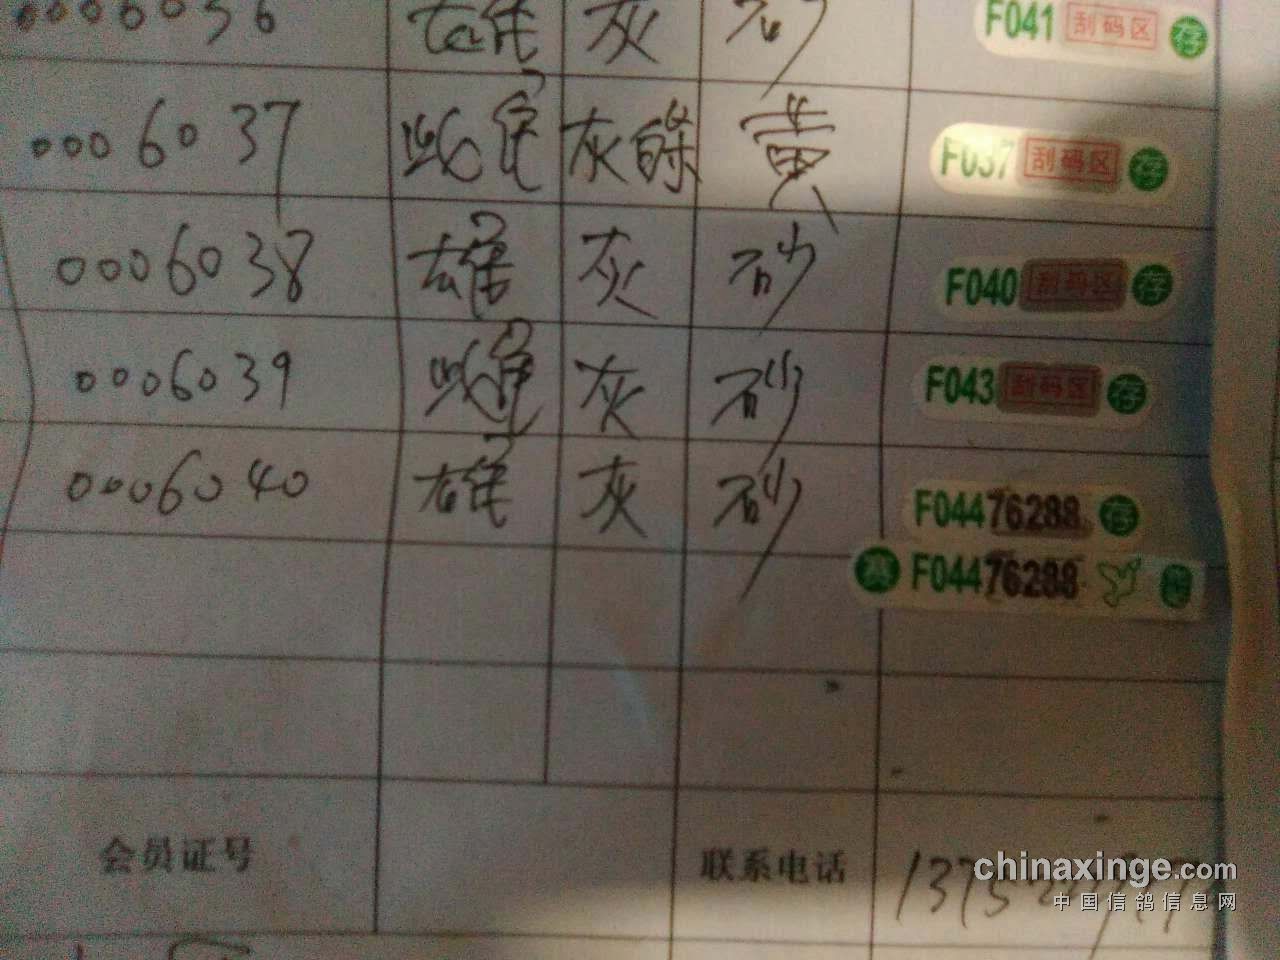 0006036 雄 灰 砂 F041 刮码区 存
0006037 雌 灰白条 黄 F037 刮码区 存
0006038 雄 灰 砂 F040 刮码区 存
0006039 雌 灰 砂 F043 刮码区 存
0006040 雄 灰 砂 F04476288 存
赛 F04476288
会员证号 联系电话
chinaxinge.com
中国信鸽信息网